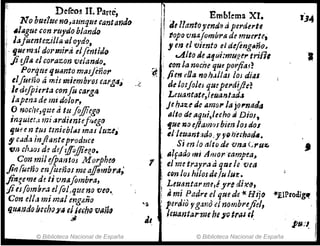 Deseos II. Parte,
No bueluē no, aunque tant ando
alague con ruydo blando
la fuentezilla al oydo,
quemal dormirà el sentido
si està el coraçon velando.
Porque quanto mas señor
el sueño à mis miembros carga,
le despierta con su carga
la pena de mi dolor.
O noche, que à tu sossiego
inquieta mi ardiente fuego
que en tus tinieblas mas luze,
y cada instante produce
un chaos de desassossiego.
Con mil espantos Morpheo
sin sueño en sueños me assombra,
finge me de ti una sombra,
si es sombra el sol, que no veo.
Con ella mi mal engaño
quando hecho ya el lecho vaño
de
Emblema XI. 134
de llanto yendo à perderte
topo una sombra de muerte,
y en el viento el desengaño.
Alto de aqui: muger triste
con la noche que porfias?
si en ella no hallas los dias
de los soles que perdiste?
Leuantate, leuantada
te haze de amor la jornada
alto de aqui, lecho à Dios,
que no estamos bien los dos
el leuantado, y yo hechada.
Si en lo alto de una Cruz
alçado mi Amor campea,
el me trayrà à que le vea
con los hilos de su luz.
Leuantarme, è yrè dixe,
à mi Padre el que de * Hijo
perdiò y ganò el nombre fiel,
leuantarme he yo tras el
*El Prodigo
pu:
© Biblioteca Nacional de España
© Biblioteca Nacional de España